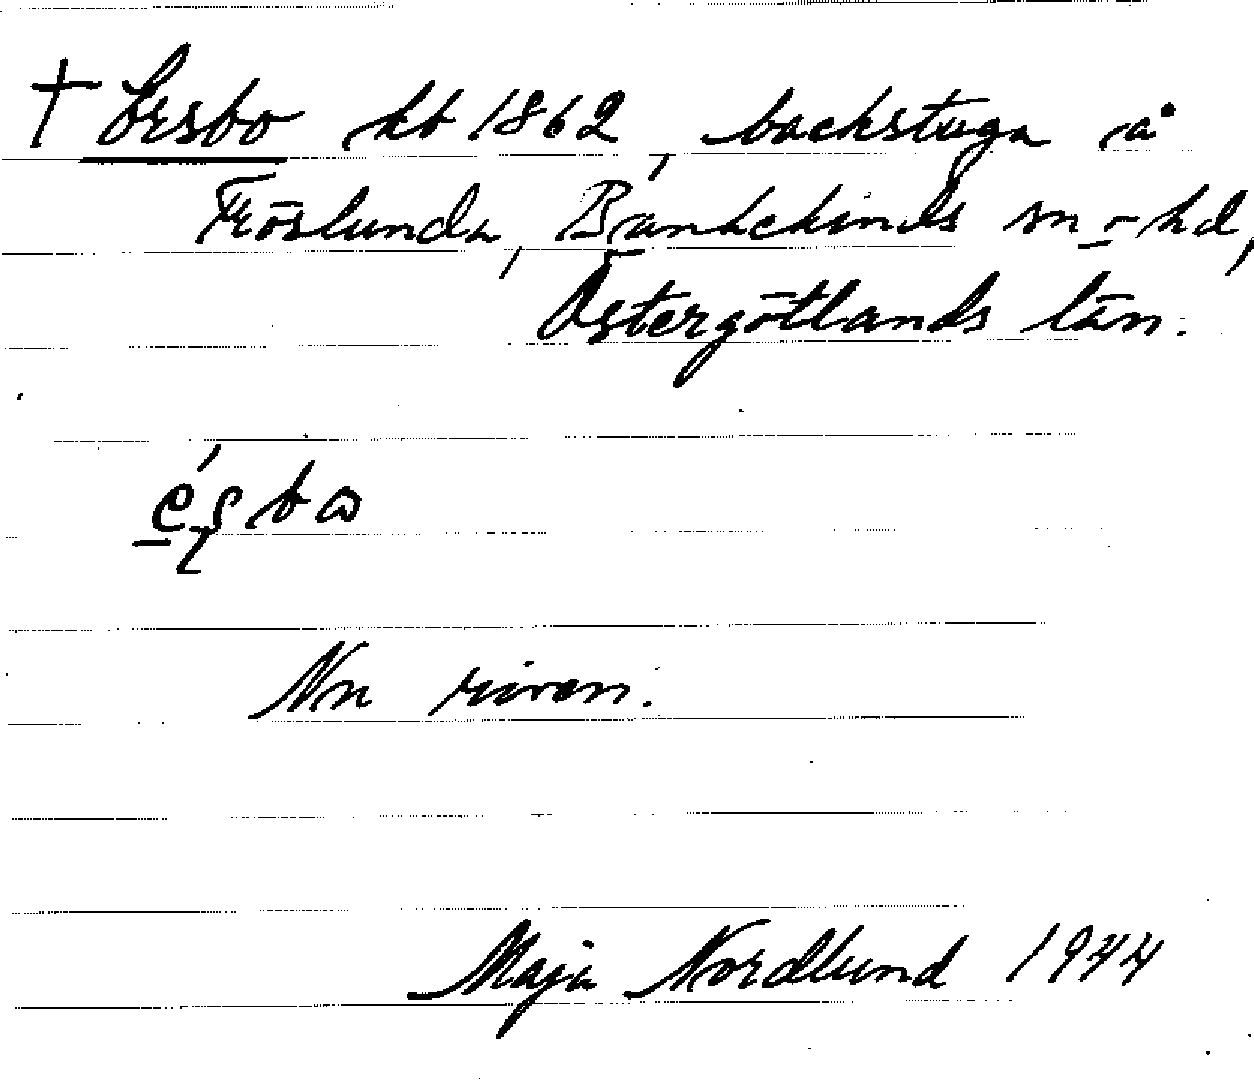 † Ersbo kb 1862, backstuga å
Fröslunda, Bankekinds sn o hd,
Östergötlands län.
Nu riven.
Maja Nordlund 1944